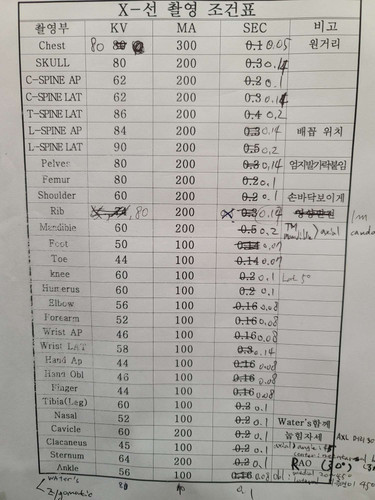 X-선 촬영 조건표
촬영부 KV MA SEC 비고
Chest 80 300 0.1 0.05 원거리
SKULL 80 200 0.3 0.14
C-SPINE AP 62 200 0.2 0.1
C-SPINE LAT 62 200 0.3 0.14
T-SPINE LAT 86 200 0.4 0.2
L-SPINE AP 84 200 0.3 0.14 배꼽 위치
L-SPINE LAT 90 200 0.5 0.2
Pelver 80 200 0.3 0.14 엄지발가락붙임
Femur 80 200 0.2 0.1
Shoulder 60 200 0.2 0.1 손바닥보이게
Rib 80 200 0.3 0.14 1m
Mandible 60 200 0.5 0.2 TM mandible > axial
Foot 50 100 0.14 0.07
Toe 44 100 0.14 0.07
knee 60 100 0.2 0.1
Humerus 60 100 0.2 0.1
Elbow 56 100 0.16 0.08
Forearm 52 100 0.16 0.08
Wrist AP 46 100 0.16 0.08
Wrist LAT 58 100 0.3 0.14
Hand Ap 44 100 0.16 0.08
Hand Obl 46 100 0.16 0.08
Finger 44 100 0.16 0.08
Tibia(Leg) 60 100 0.2 0.1
Nasal 52 100 0.2 0.1 Water's함께
Cavicle 60 200 0.2 0.1 눕힘자세
Clacaneus 45 100 0.2 0.1 axial angle: 45
Sternum 64 200 0.2 0.1 RAO (30°)
Ankle 56 100 0.16 0.08 obl:
water's 80 0.1